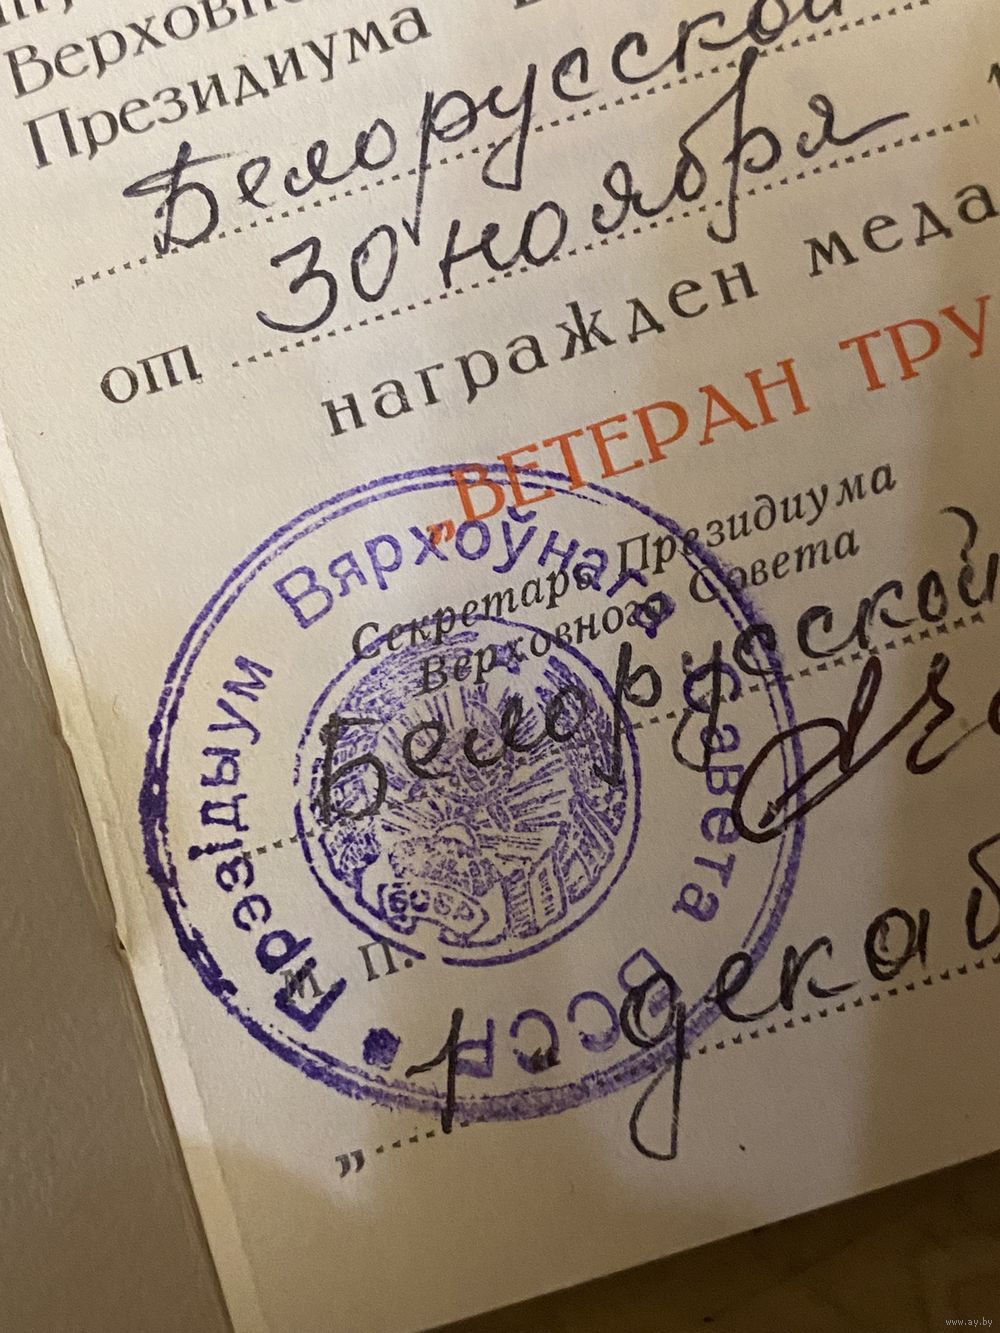 Верховного
Президиума
Белорусской
от 30 ноября
награжден меда
„ВЕТЕРАН ТРУ
Секретарь Президиума
Верховного Совета
Белорусской
М. П.
„1 декаб
Прэзідыум Вярхоўнага Савета БССР
БССР
www.ay.by